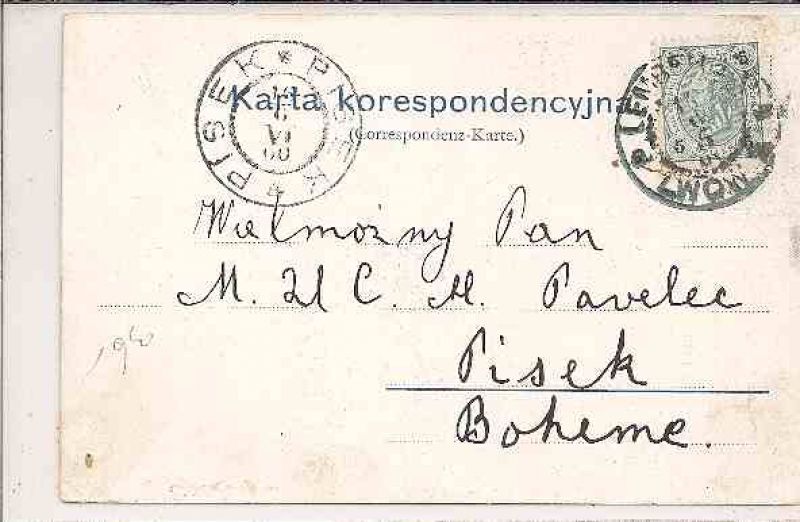 PÍSEK * PÍSEK *
VI
Karta korespondencyjna
(Correspondenz-Karte.)
5 5
5 5
LWÓW
Wielmożny Pan
M. U C. M. Pavelec
Pisek
Boheme.